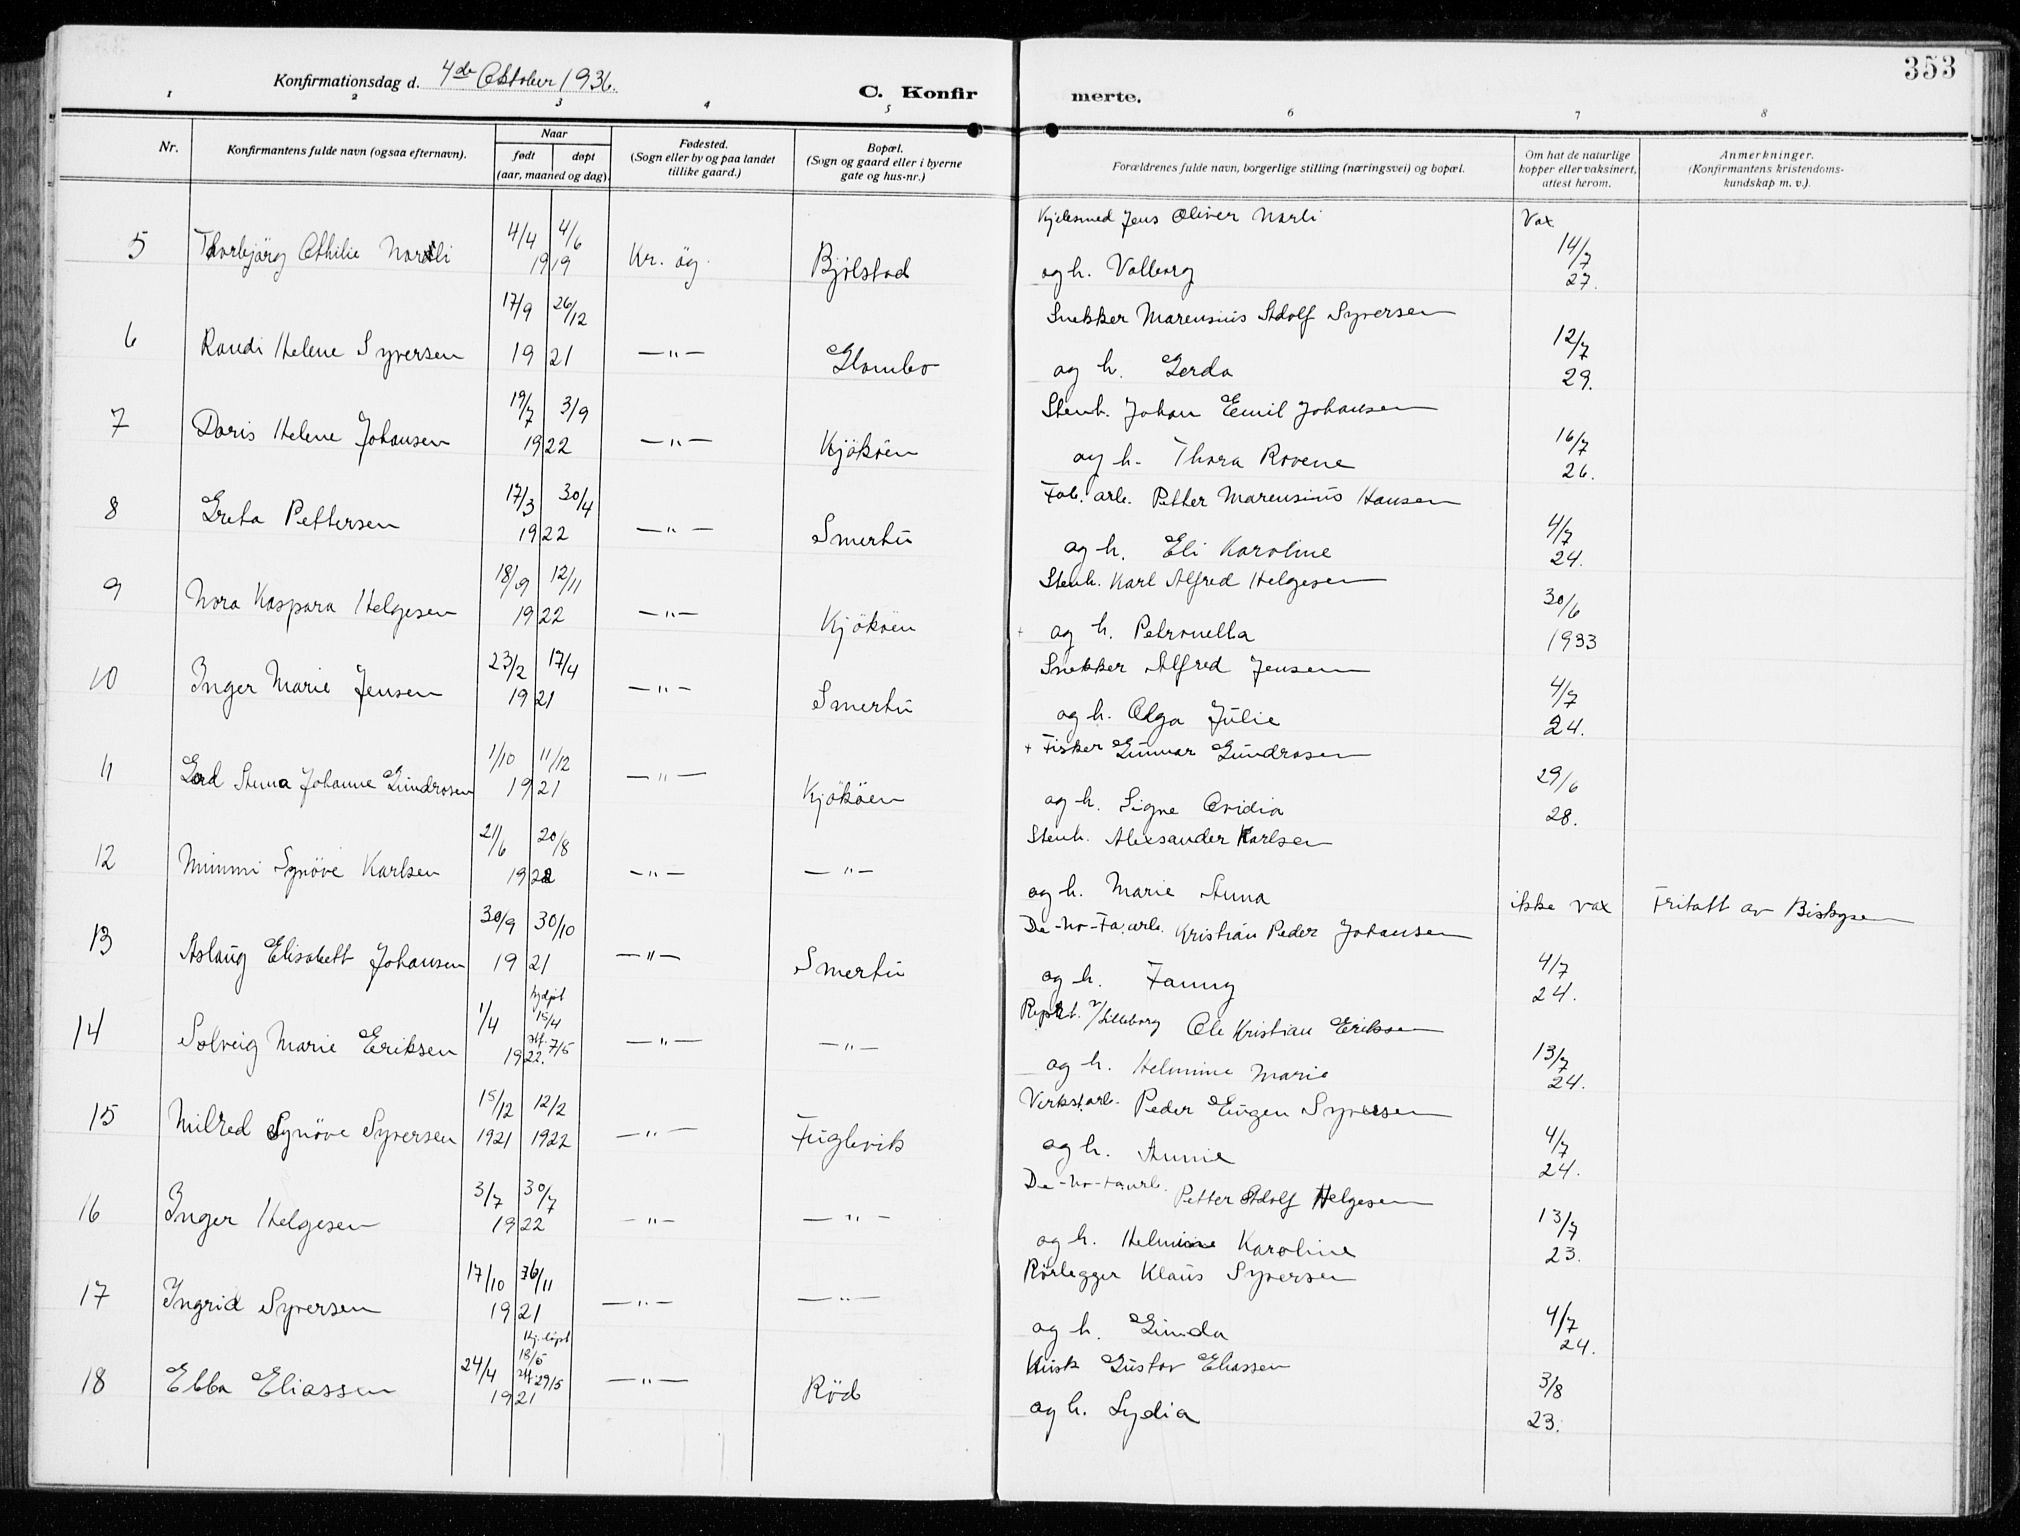 353
Konfirmationsdag d. 4de Oktober 1936.
C. Konfirmerte.
1 2 3 4 5 6 7 8
Nr.
Konfirmantens fulde navn (ogsaa efternavn).
Naar
født døpt
(aar, maaned og dag).
Fødested.
(Sogn eller by og paa landet
tillike gaard.)
Bopæl.
(Sogn og gaard eller i byerne
gate og hus-nr.)
Forældrenes fulde navn, borgerlige stilling (næringsvei) og bopæl.
Om hat de naturlige
kopper eller vaksinert,
attest herom.
Anmerkninger.
(Konfirmantens kristendoms-
kundskap m. v.).
5 Thorbjörg Othilie Narli 4/4 4/6 1919 Kr. öy. Bjölstad Kjelesmed Jens Oliver Narli Vax 14/7
og h. Valborg 27.
6 Randi Helene Syversen 17/9 26/12 1921 —"— Glombo Snekker Marensius Adolf Syversen 12/7
og h. Gerda 29.
7 Doris Helene Johansen 19/7 3/9 1922 —"— Kjököen Stenh. Johan Emil Johansen 16/7
og h. Thora Rovene 26.
8 Greta Pettersen 17/3 30/4 1922 —"— Smertu Fab. arb. Petter Marensius Hansen 4/7
og h. Eli Karoline 24.
9 Nora Kaspara Helgesen 18/9 12/11 1922 —"— Kjököen Stenh. Karl Alfred Helgesen 30/6
+ og h. Petronella 1933
10 Inger Marie Jensen 23/2 17/4 1921 —"— Smertu Snekker Alfred Jensen 4/7
og h. Olga Julie 24.
11 Gerd Anna Johanne Gundrosen 1/10 11/12 1921 —"— Kjököen + Fisker Gunnar Gundrosen 29/6
og h. Signe Ovidia 28.
12 Mimmi Synöve Karlsen 21/6 20/8 1922 —"— —"— Stenh. Alexsander Karlsen
og h. Marie Anna ikke vax Fritatt av Biskopen
13 Aslaug Elisabett Johansen 30/9 30/10 1921 —"— Smertu De-No-Fa. arb. Kristian Peder Johansen 4/7
og h. Fanny 24.
14 Solveig Marie Eriksen 1/4 hjdöpt 15/4 stf. 7/5 1922. —"— —"— v/Lilleborg Ole Kristian Eriksen 13/7
og h. Helmine Marie 24.
15 Milred Synöve Syversen 15/12 1921 12/2 1922 —"— Fuglevik Verkst.arb. Peder Eugen Syversen 4/7
og h. Annie 24.
16 Inger Helgesen 3/7 30/7 1922 —"— —"— De-No-Fa arb. Petter Adolf Helgesen 13/7
og h. Helmine Karoline 23.
17 Ingrid Syversen 17/10 /11 1921 —"— —"— Rörlegger Klaus Syversen 4/7
og h. Gunda 24.
18 Ebba Eliassen 24/4 Hj. döpt 18/5 stf. 29/5 1921 —"— Röd Gustav Eliassen 3/8
og h. Lydia 23.